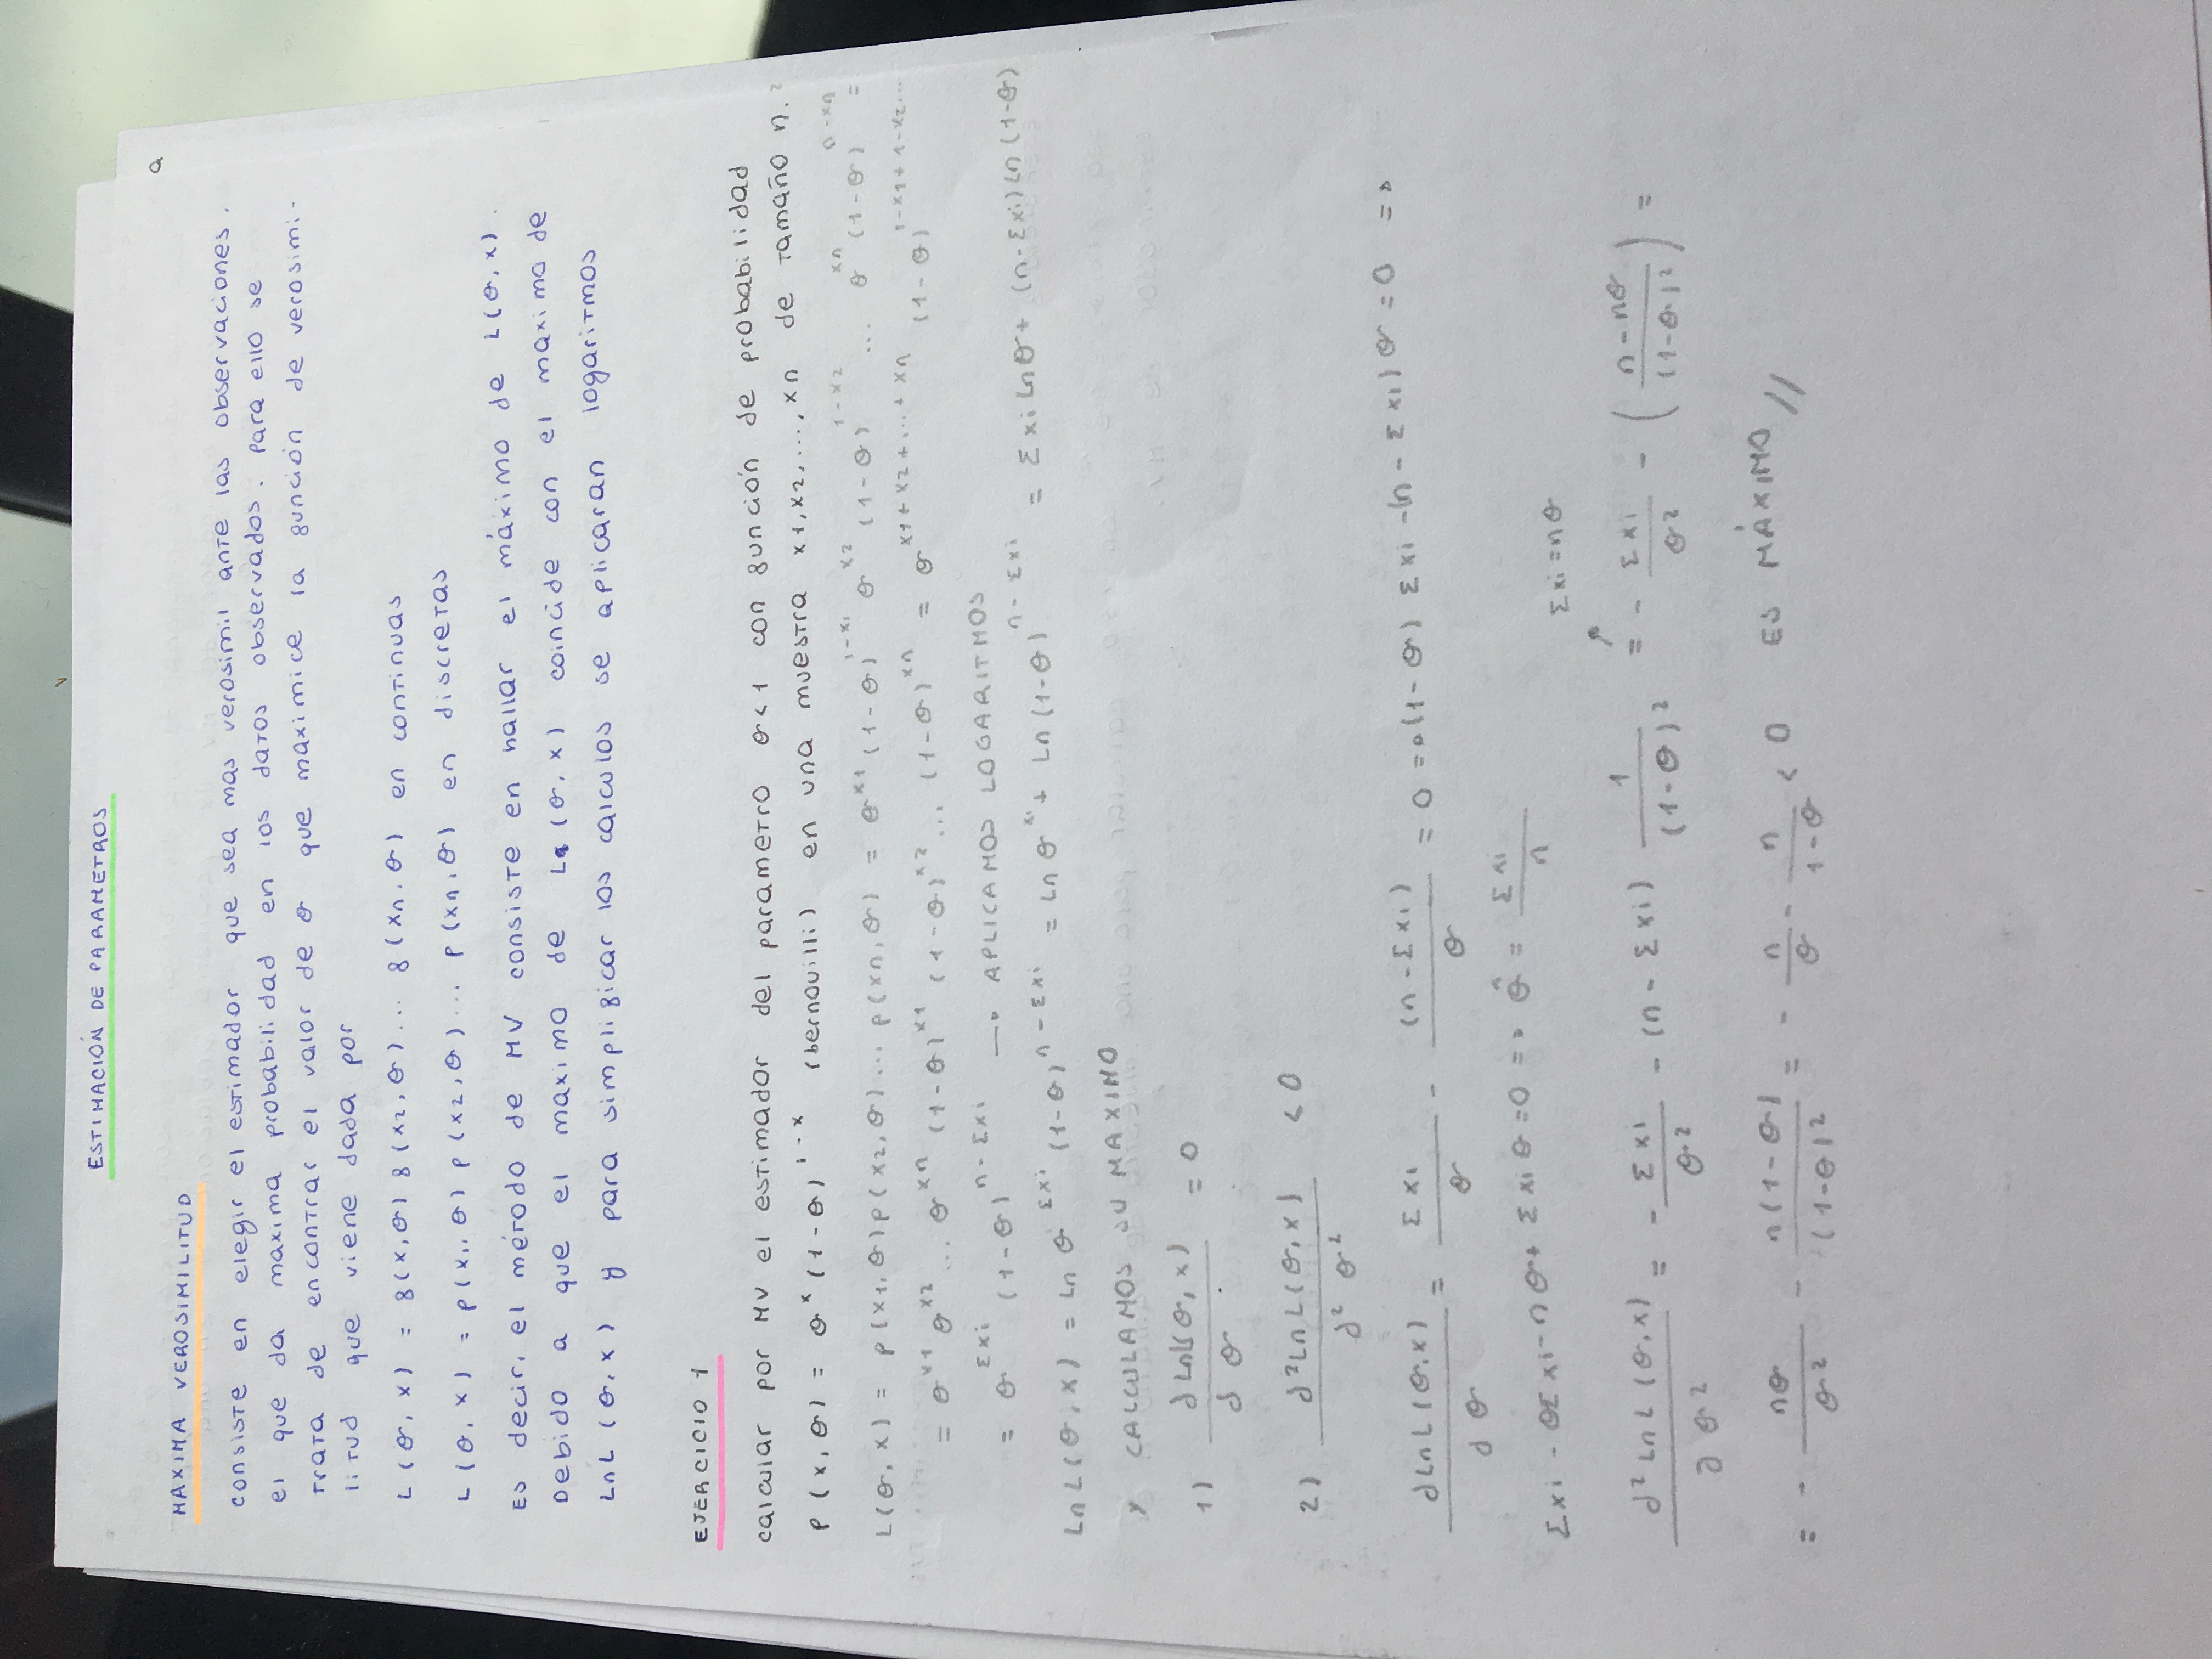 ESTIMACIÓN DE PARAMETROS
a
MAXIMA VEROSIMILITUD
consiste en elegir el estimador que sea mas verosimil ante las observaciones.
el que da maxima probabilidad en los datos observados. Para ello se
trata de encontrar el valor de θ que maximice la función de verosimi-
litud que viene dada por
L(θ, x) = f(x,θ) f(x2,θ)... f(xn,θ) en continuas
L(θ, x) = p(x1,θ) p(x2,θ)... p(xn,θ) en discretas
Es decir, el método de MV consiste en hallar el máximo de L(θ,x).
Debido a que el maximo de L(θ,x) coincide con el maximo de
LnL(θ,x) y para simplificar los calculos se aplicaran logaritmos
EJERCICIO 1
calcular por MV el estimador del parametro θ<1 con función de probabilidad
P(x,θ) = θ^x (1-θ)^1-x (bernouilli) en una muestra x1,x2,...,xn de tamaño n.
L(θ,x) = p(x1,θ)p(x2,θ)... p(xn,θ) = θ^x1 (1-θ)^1-x1 θ^x2 (1-θ)^1-x2 ... θ^xn (1-θ)^n-xn =
= θ^x1 θ^x2 ... θ^xn (1-θ)^x1 (1-θ)^x2 ... (1-θ)^xn = θ^x1+x2+...+xn (1-θ)^1-x1+1-x2...
= θ^Σxi (1-θ)^n-Σxi → APLICAMOS LOGARITMOS
LnL(θ,x) = Ln θ^Σxi (1-θ)^n-Σxi = Ln θ^xi + Ln(1-θ)^n-Σxi = Σxi Lnθ + (n-Σxi)Ln(1-θ)
Y CALCULAMOS SU MAXIMO
1) ∂LnL(θ,x) / ∂θ = 0
2) ∂²LnL(θ,x) / ∂²θ² < 0
∂LnL(θ,x) / ∂θ = Σxi / θ - (n-Σxi) / θ = 0 => (1-θ) Σxi -(n-Σxi)θ = 0 =>
Σxi - θΣxi - nθ + Σxiθ = 0 => θ̂ = Σxi / n
Σxi = nθ
∂²LnL(θ,x) / ∂θ² = - Σxi / θ² - (n-Σxi) 1 / (1-θ)² = - Σxi / θ² - (n-nθ / (1-θ)²) =
= - nθ / θ² - n(1-θ) / (1-θ)² = - n / θ - n / 1-θ < 0 ES MÁXIMO //